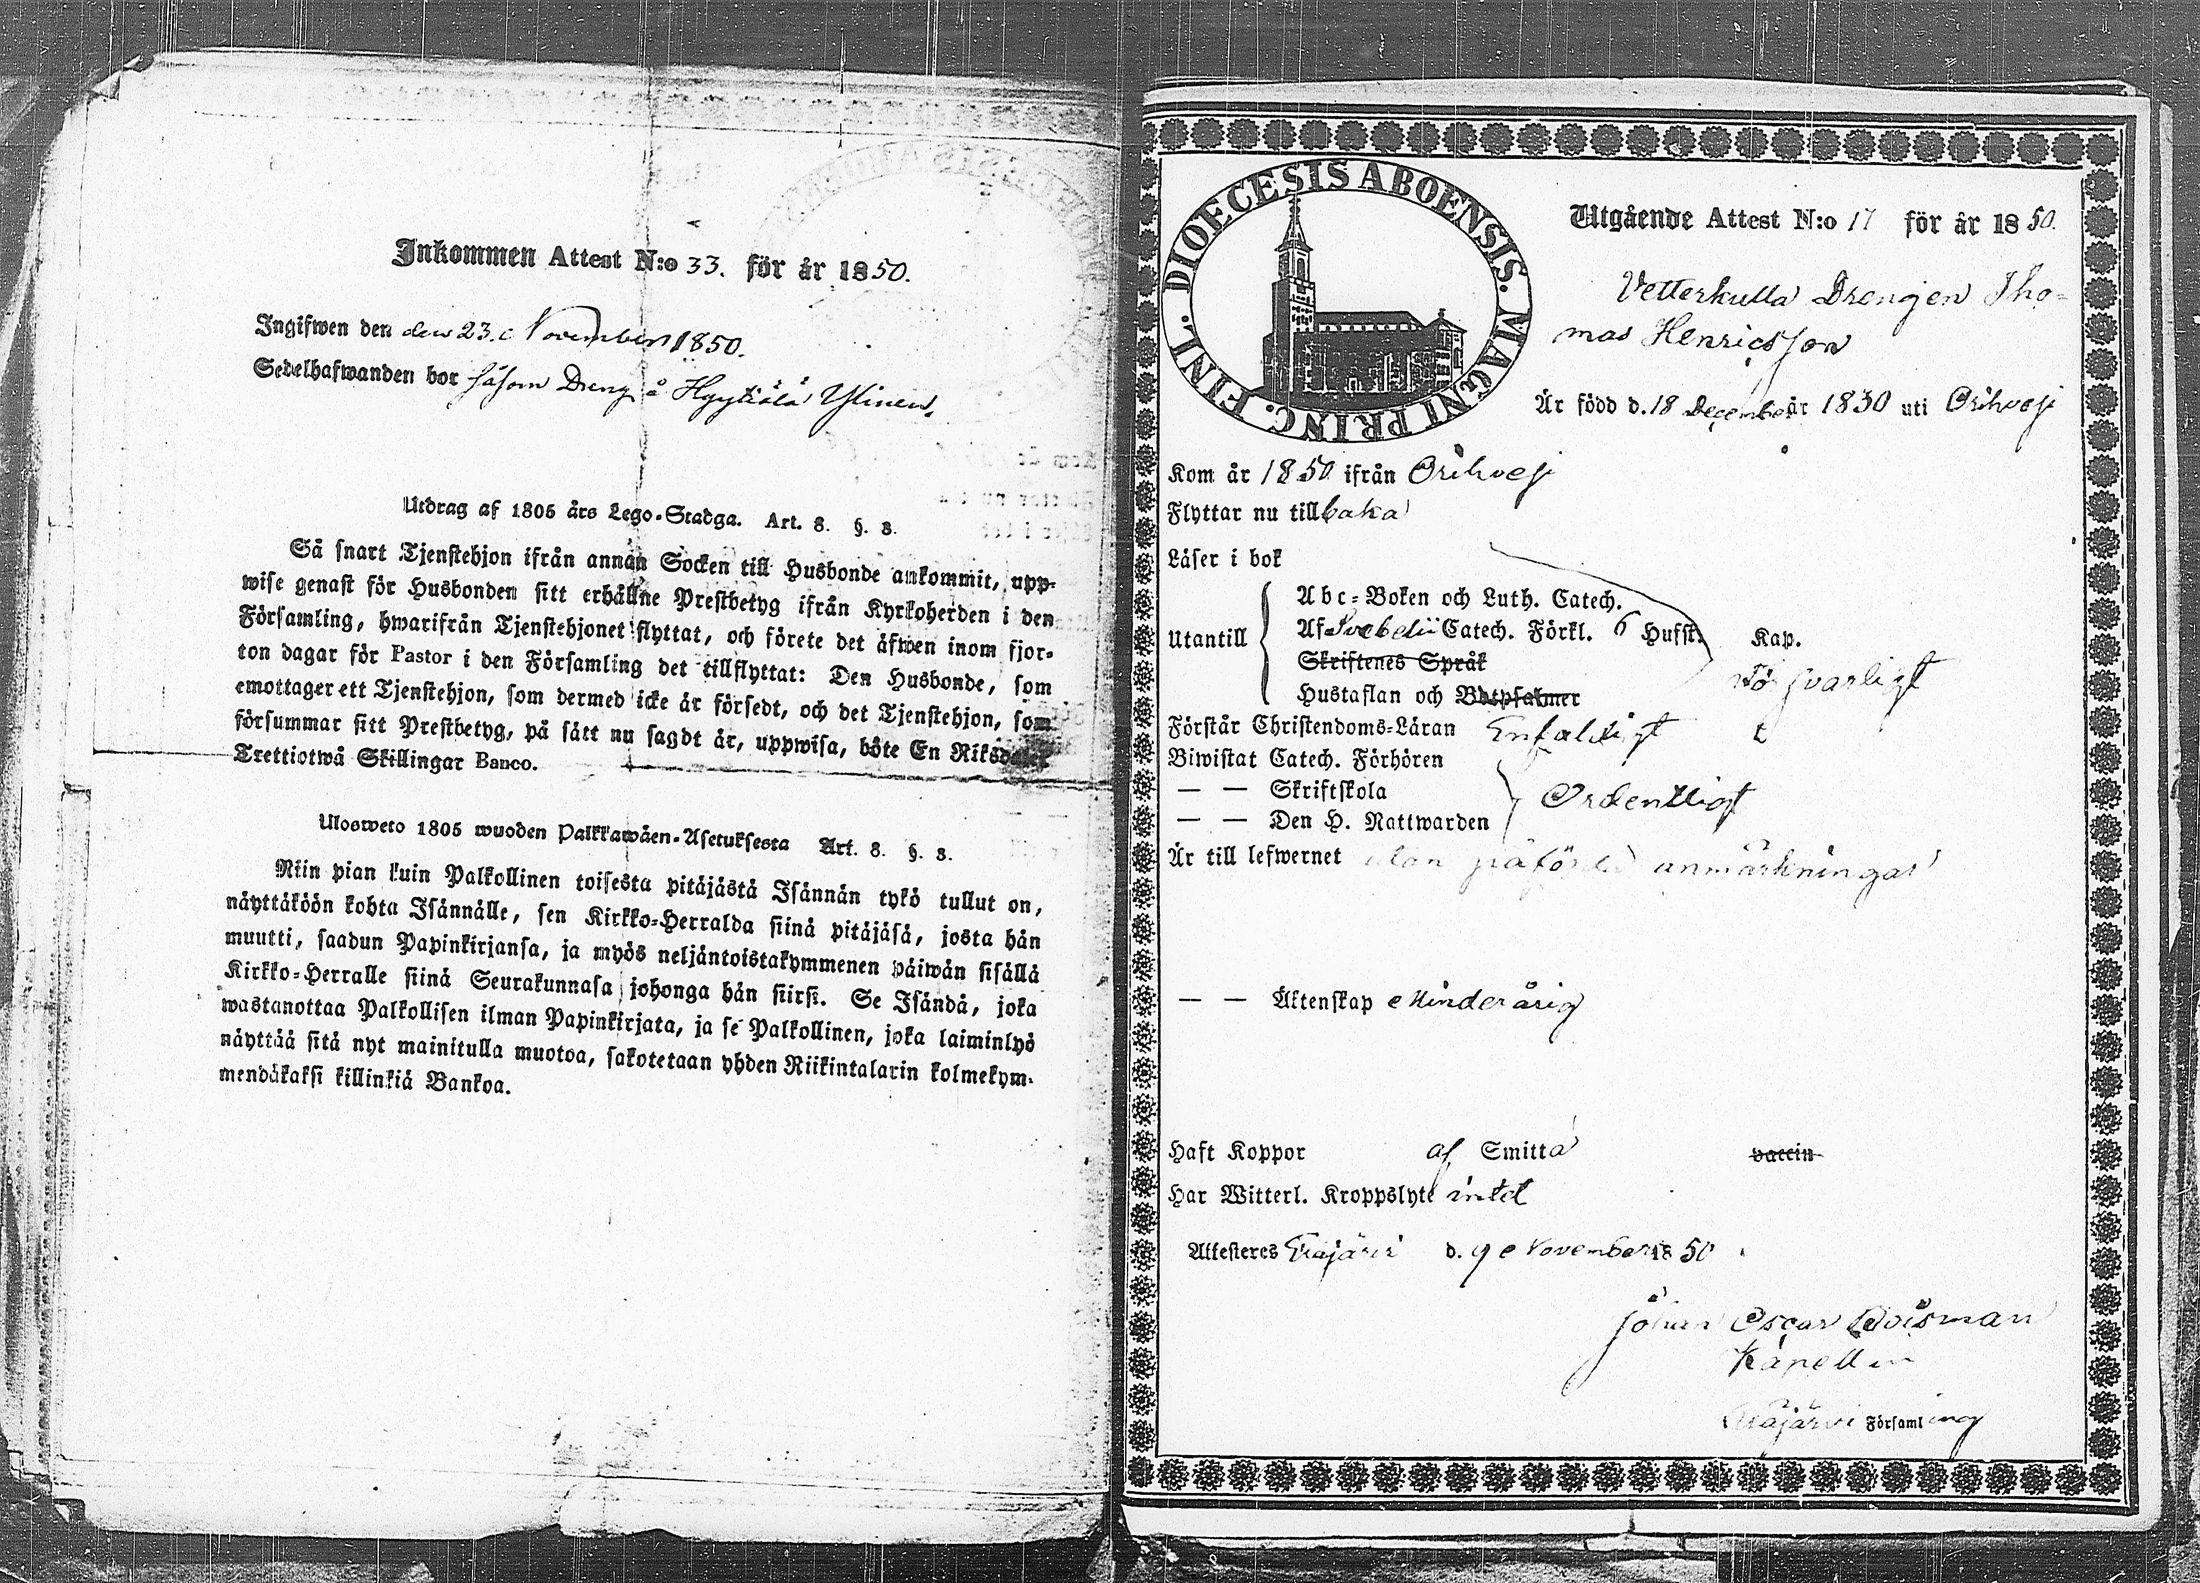 Inkommen Attest N:o 33. för år 1850.
Ingifwen den den 23. November 1850.
Sedelhafwanden bor såsom Dreng å Hyytiälä Ylinen.
Utdrag af 1805 års Lego-Stadga. Art. 8. §. 8.
Så snart Tjenstehjon ifrån annan Socken till Husbonde ankommit, upp-
wise genast för Husbonden sitt erhållne Prestbetyg ifrån Kyrkoherden i den
Församling, hwarifrån Tjenstehjonet flyttat, och förete det äfwen inom fjor-
ton dagar för Pastor i den Församling det tillflyttat: Den Husbonde, som
emottager ett Tjenstehjon, som dermed icke är försedt, och det Tjenstehjon, som
försummar sitt Prestbetyg, på sätt nu sagdt är, uppwisa, böte En Riksdaler
Trettiotwå Skillingar Banco.
Ulosweto 1805 wuoden Palkkawäen-Asetuksesta Art. 8. §. 8.
Niin pian kuin Palkollinen toisesta pitäjästä Isännän tykö tullut on,
näyttäköön kohta Isännälle, sen Kirkko-Herralda siinä pitäjäsä, josta hän
muutti, saadun Papinkirjansa, ja myös neljäntoistakymmenen päiwän sisällä
Kirkko-Herralle siinä Seurakunnasa johonga hän siirsi. Se Isändä, joka
wastanottaa Palkollisen ilman Papinkirjata, ja se Palkollinen, joka laiminlyö
näyttää sitä nyt mainitulla muotoa, sakotetaan yhden Riikintalarin kolmekym-
mendäkaksi killinkiä Bankoa.
DIOECESIS ABOENSIS. MAGNI PRINC. FINL.
Utgående Attest N:o 17 för år 1850.
Vetterkulla Drengen Tho=
mas Henricsson
Är född d. 18 December år 1830 uti Orihvesi
Kom år 1850 ifrån Orihvesi
Flyttar nu tillbaka
Läser i bok
Utantill
Abc-Boken och Luth. Catech.
Af Svebelii Catech. Förkl. 6 Hufst. Kap.
Skriftenes Språk
Försvarligt
Hustaflan och Botpsalmer
Förstår Christendoms-Läran Enfaldigt
Biwistat Catech. Förhören
— — Skriftskola
Ordentligt
— — Den H. Nattwarden
Är till lefwernet utan påförda anmärkningar
— — Äktenskap Minderårig
Haft Koppor af Smitta vaccin
Har Witterl. Kroppslyte intet
Attesteres Eräjärvi d. 9 November 1850
Johan Oscar Roisman
Kapellan
Eräjärvi Församling